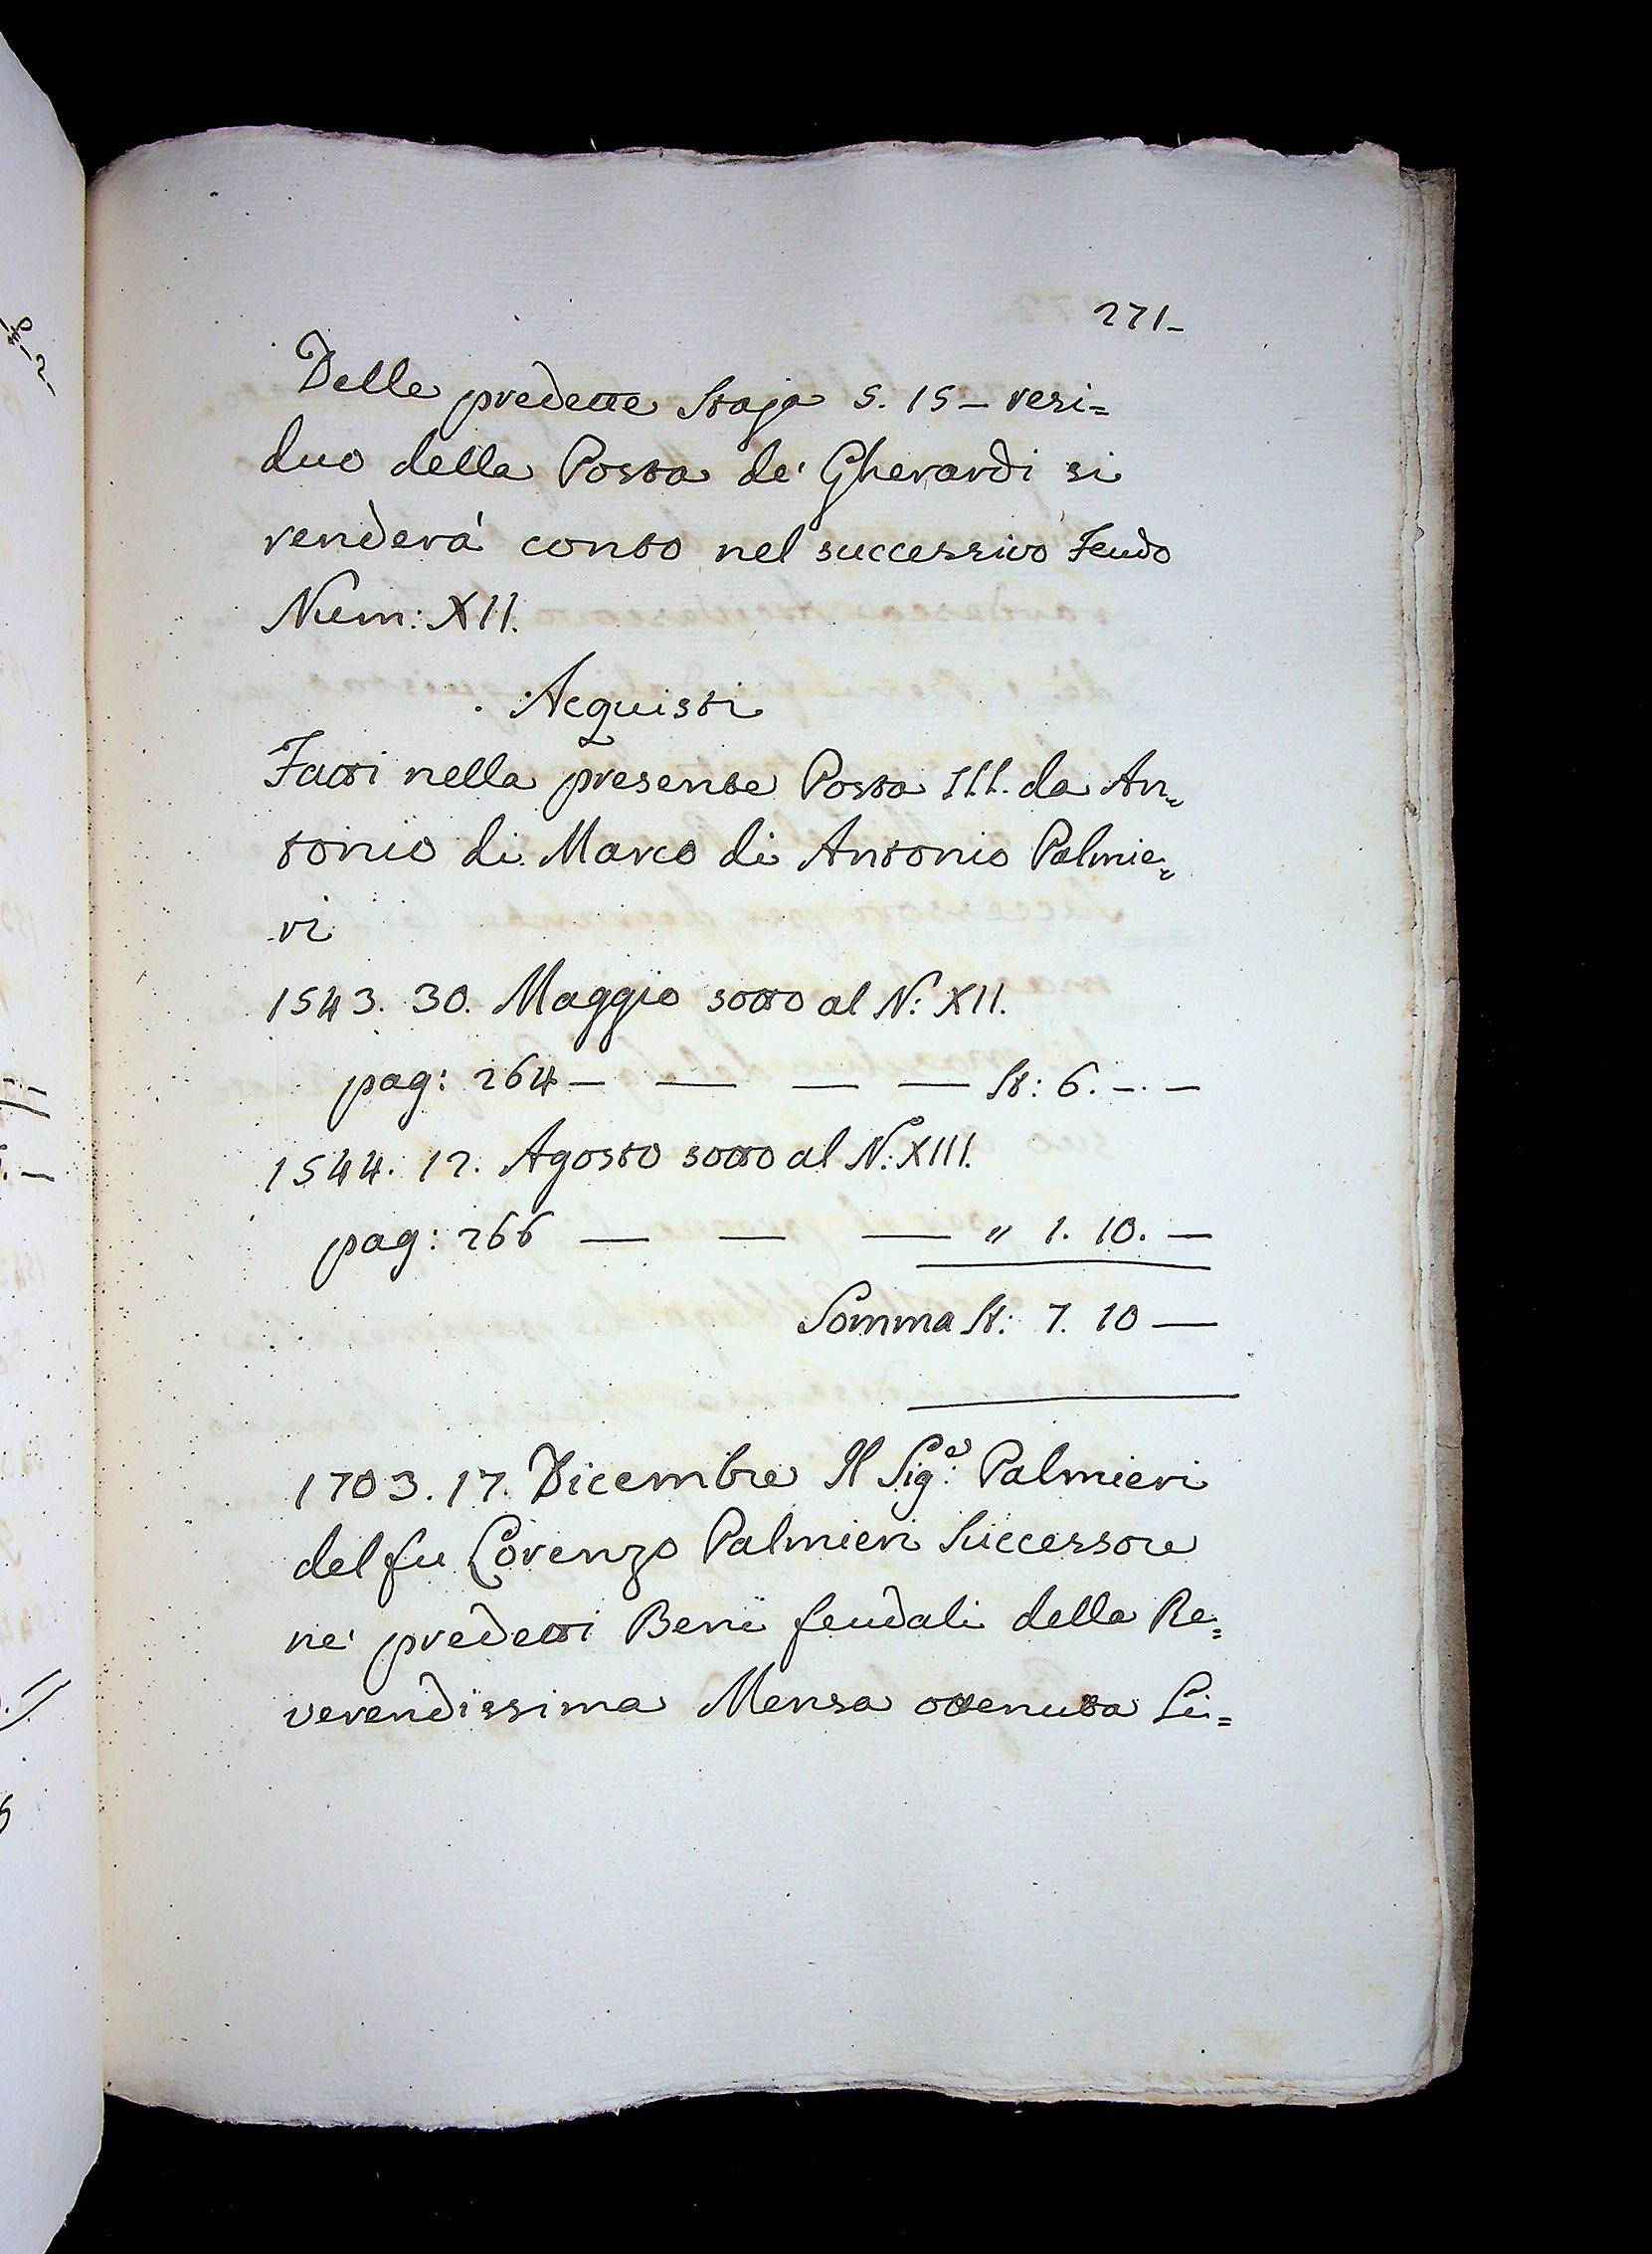 271_
Delle predette Staja 5. 15 – resi=
duo della Posta de' Gherardi si
renderà conto nel successivo Feudo
Num: XII.
Acquisti
Fatti nella presente Posta III. da An=
tonio di Marco di Antonio Palmie=
ri
1543. 30. Maggio sotto al N: XII.
pag: 264 — — — — St: 6. –. –
1544. 12. Agosto sotto al N: XIII.
pag: 266 — — — " 1. 10. —
Somma St: 7. 10 —
1703. 17. Dicembre Il Sig:e Palmieri
del fu Lorenzo Palmieri Successore
ne' predetti Beni feudali della Re=
verendissima Mensa ottenuta Li=